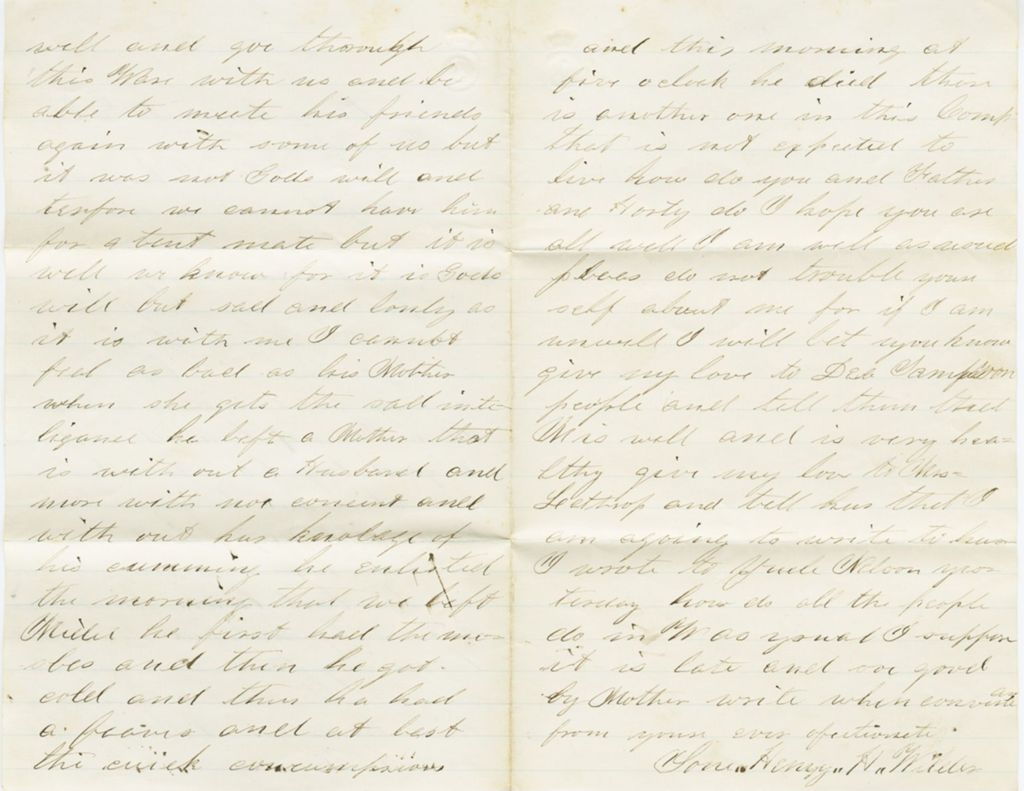 well and goe thorough
this Ware with us and be
able to meete his friends
again with some of us but
it was not Gods will and
terfore we cannot have him
for a tent mate but it is
well we know for it is Gods
will but sad and lonly as
it is with me I cannot
feal as bad as his Mother
when she gets the sad inte-
ligance he left a Mother that
is with out a Husband and
more with not concent and
with out her knolage of
his cumming he enlisted
the morning that we left
he first had the mea-
sles and then he got
cold and then he had
a feavor and at last
the quick concumpsion
and this morning at
five oclock he died there
is another one in this Comp
that is not expected to
live how do you and Father
and do I hope you are
all well I am well as usual
pleas do not trouble your
self about me for if I am
unwell I will let you know
give my love to Dea Sampson
people and tell them that
is well and is very hea-
lthy give my love to Mrs
Leathrop and tell her that I
am agoing to write to her
I wrote to Uncle Nelson yes-
terday how do all the people
do in W as usual I suppose
it is late and soe good
by Mother write when convinta
from your ever afectionate
Sone. Henry. H. Wilder